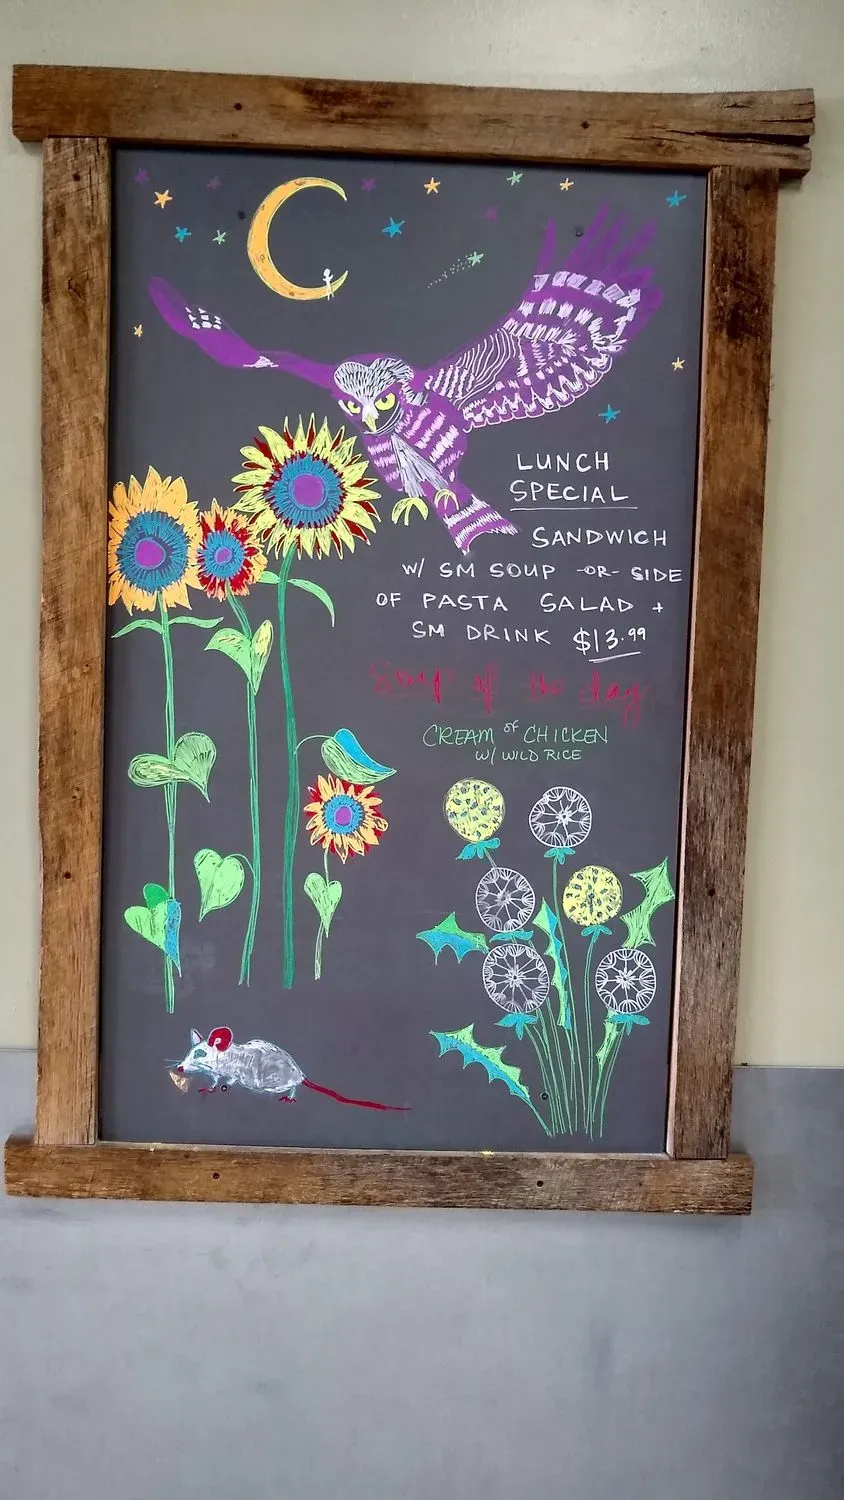 LUNCH
SPECIAL
SANDWICH
W/ SM SOUP -OR- SIDE
OF PASTA SALAD +
SM DRINK $13.99
Soup of the day
CREAM of CHICKEN
W/ WILD RICE